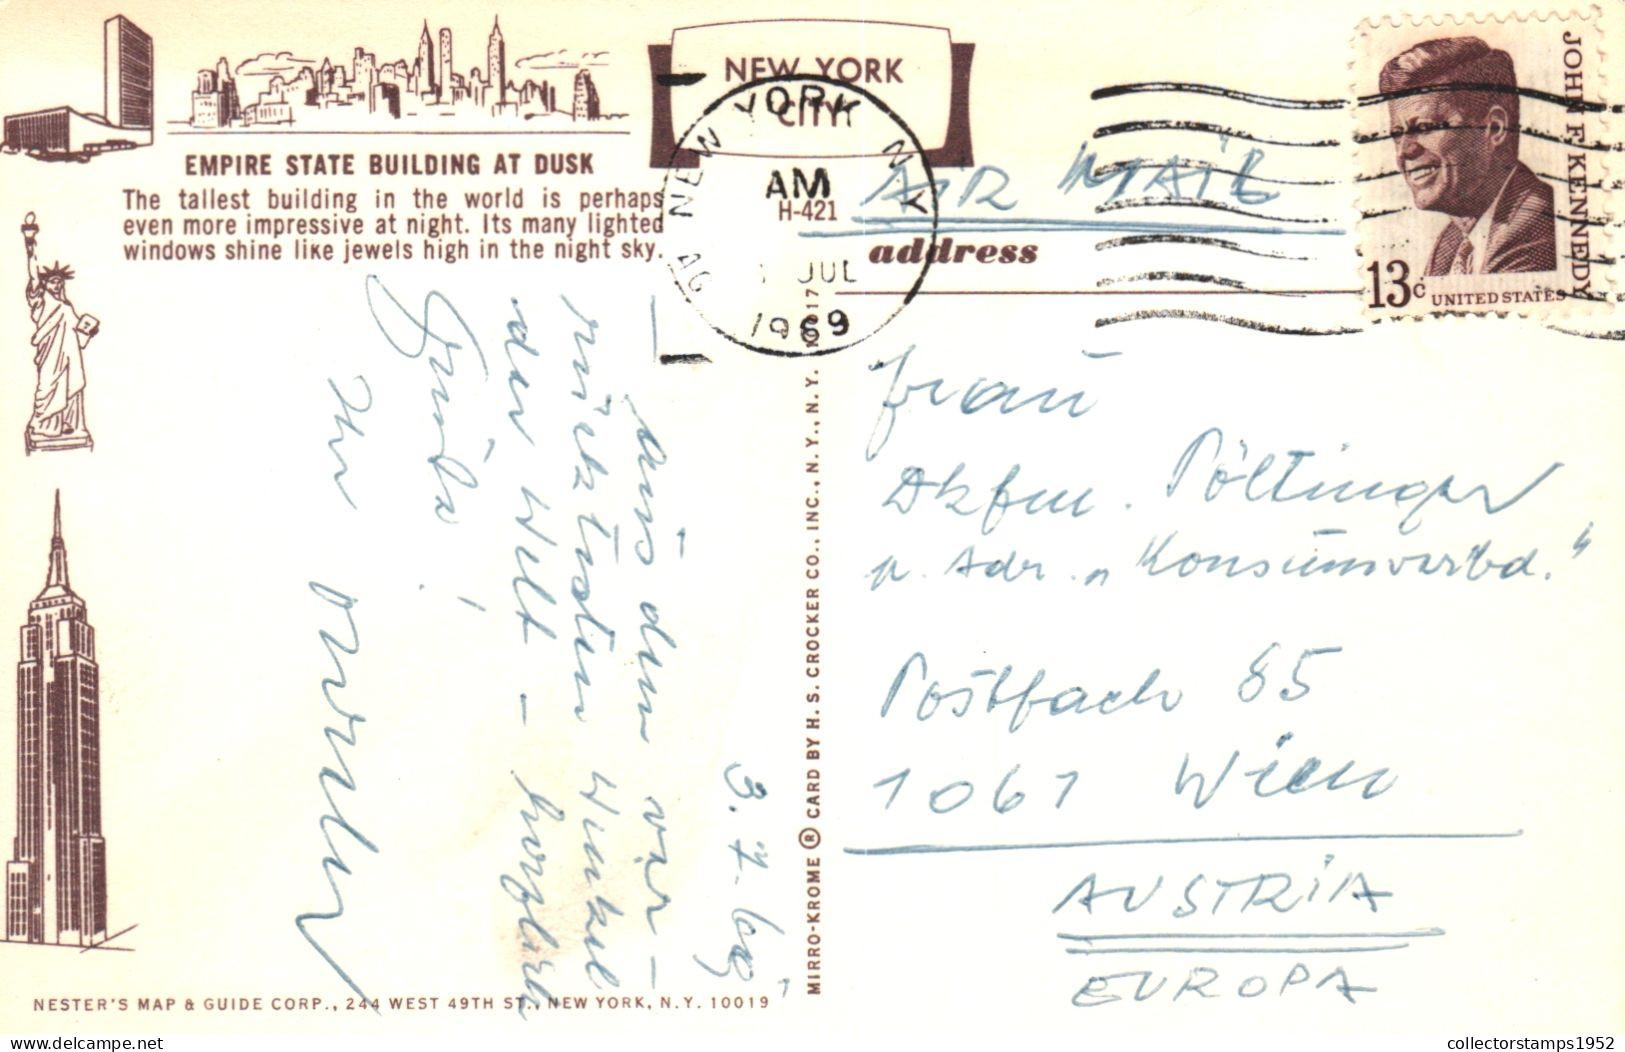 EMPIRE STATE BUILDING AT DUSK
The tallest building in the world is perhaps
even more impressive at night. Its many lighted
windows shine like jewels high in the night sky.
NEW YORK
CITY
NEW YORK N.Y.
AM
JUL
1969
H-421
AIR MAIL
address
JOHN F. KENNEDY
13c UNITED STATES
3. 7. 69
Aus dem ver-
rücktesten Winkel
der Welt - herzliche
Grüße!
Ihr
Frau
Dkfm. Pöltinger
p. Adr. „Konsumverbd."
Postfach 85
1061 Wien
AUSTRIA
EUROPA
MIRRO-KROME ® CARD BY H. S. CROCKER CO., INC., N. Y., N. Y. 10017
NESTER'S MAP & GUIDE CORP., 244 WEST 49TH ST., NEW YORK, N.Y. 10019
collectorstamps1952